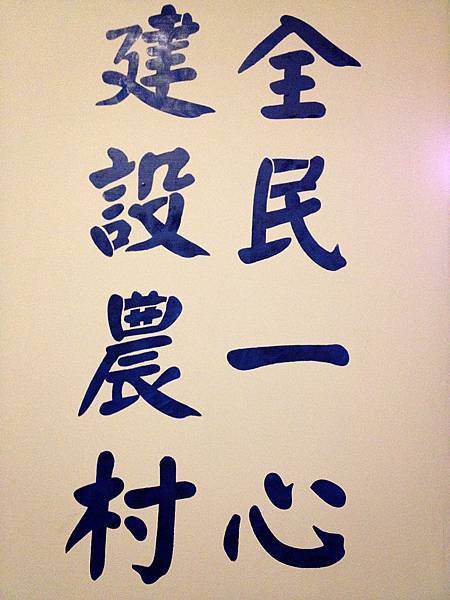 全民一心
建設農村